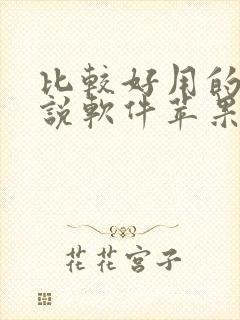 比較好用的
說軟件苹果
花花宮子